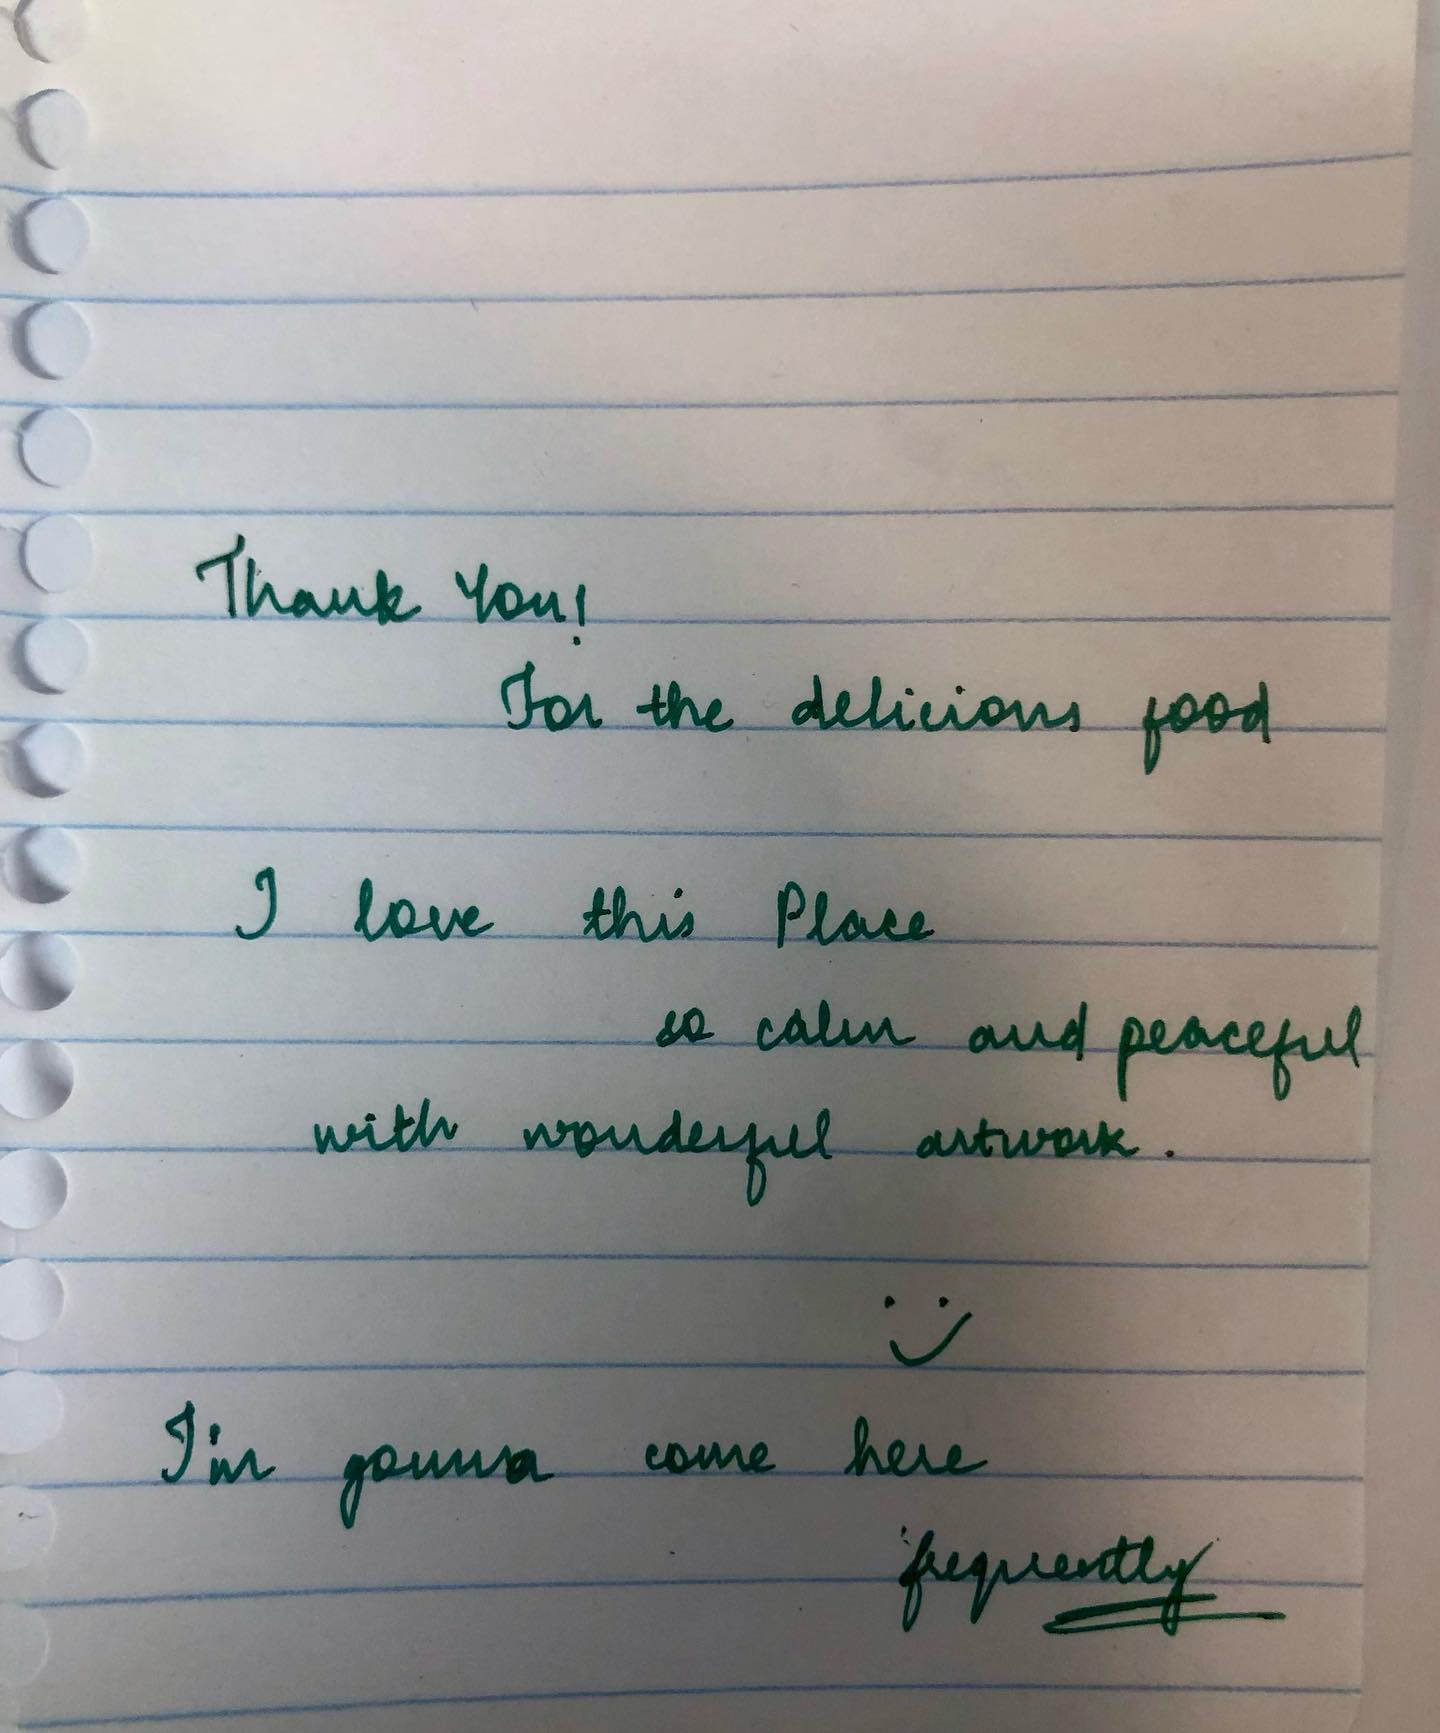 Thank You!
For the delicious food
I love this Place
so calm and peaceful
with wonderful artwork.
I'm gonna come here
frequently